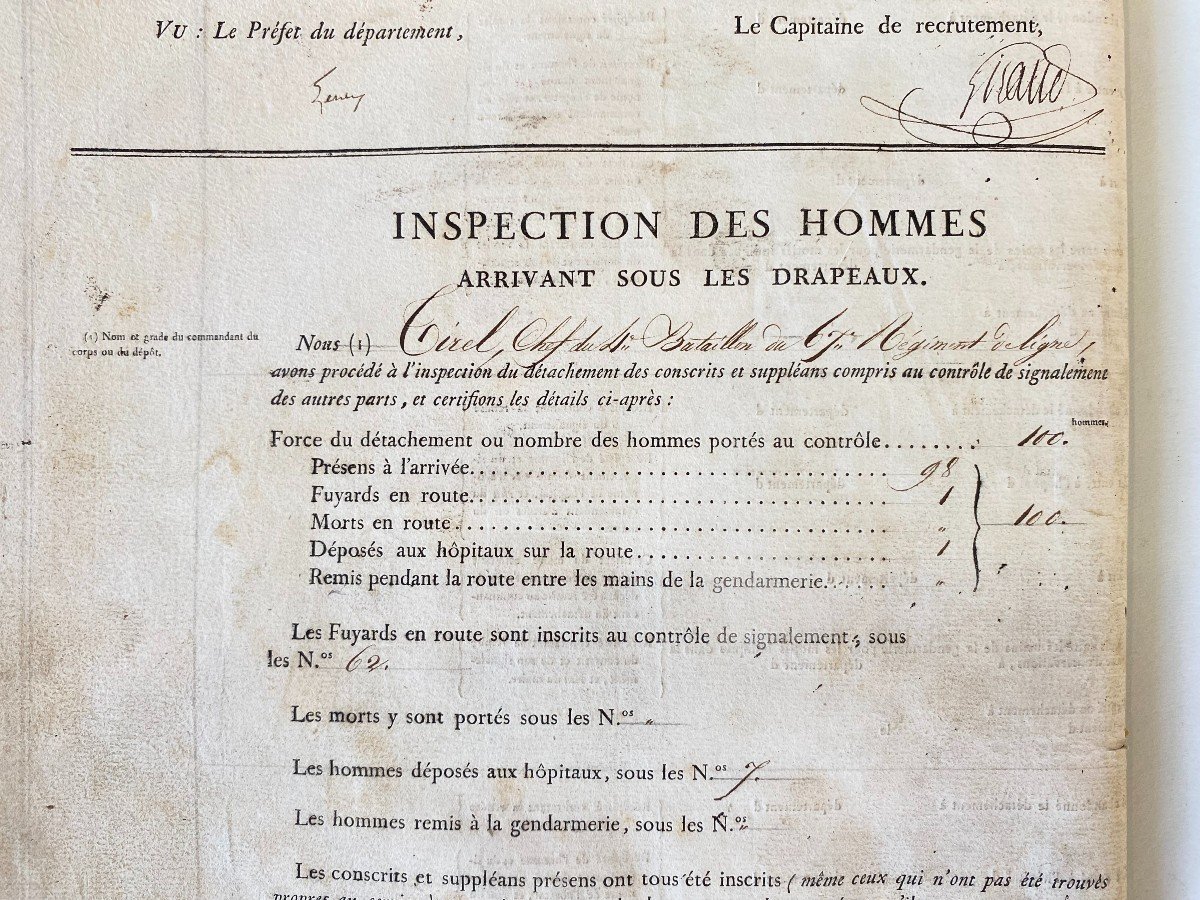 VU : Le Préfet du département,
Le Capitaine de recrutement,
Giraud
INSPECTION DES HOMMES
ARRIVANT SOUS LES DRAPEAUX.
(1) Nom et grade du commandant du
corps ou du dépôt.
Nous (1) Tirel, Chef du 4e Bataillon du 67e Régiment de ligne,
avons procédé à l'inspection du détachement des conscrits et suppléans compris au contrôle de signalement
des autres parts, et certifions les détails ci-après :
hommes.
Force du détachement ou nombre des hommes portés au contrôle........ 100.
Présens à l'arrivée................................ 98
Fuyards en route................................ 1
Morts en route................................ „ 100.
Déposés aux hôpitaux sur la route................... 1
Remis pendant la route entre les mains de la gendarmerie...... „
Les Fuyards en route sont inscrits au contrôle de signalement, sous
les N.os 62.
Les morts y sont portés sous les N.os „
Les hommes déposés aux hôpitaux, sous les N.os 7.
Les hommes remis à la gendarmerie, sous les N.os „
Les conscrits et suppléans présens ont tous été inscrits (même ceux qui n'ont pas été trouvés